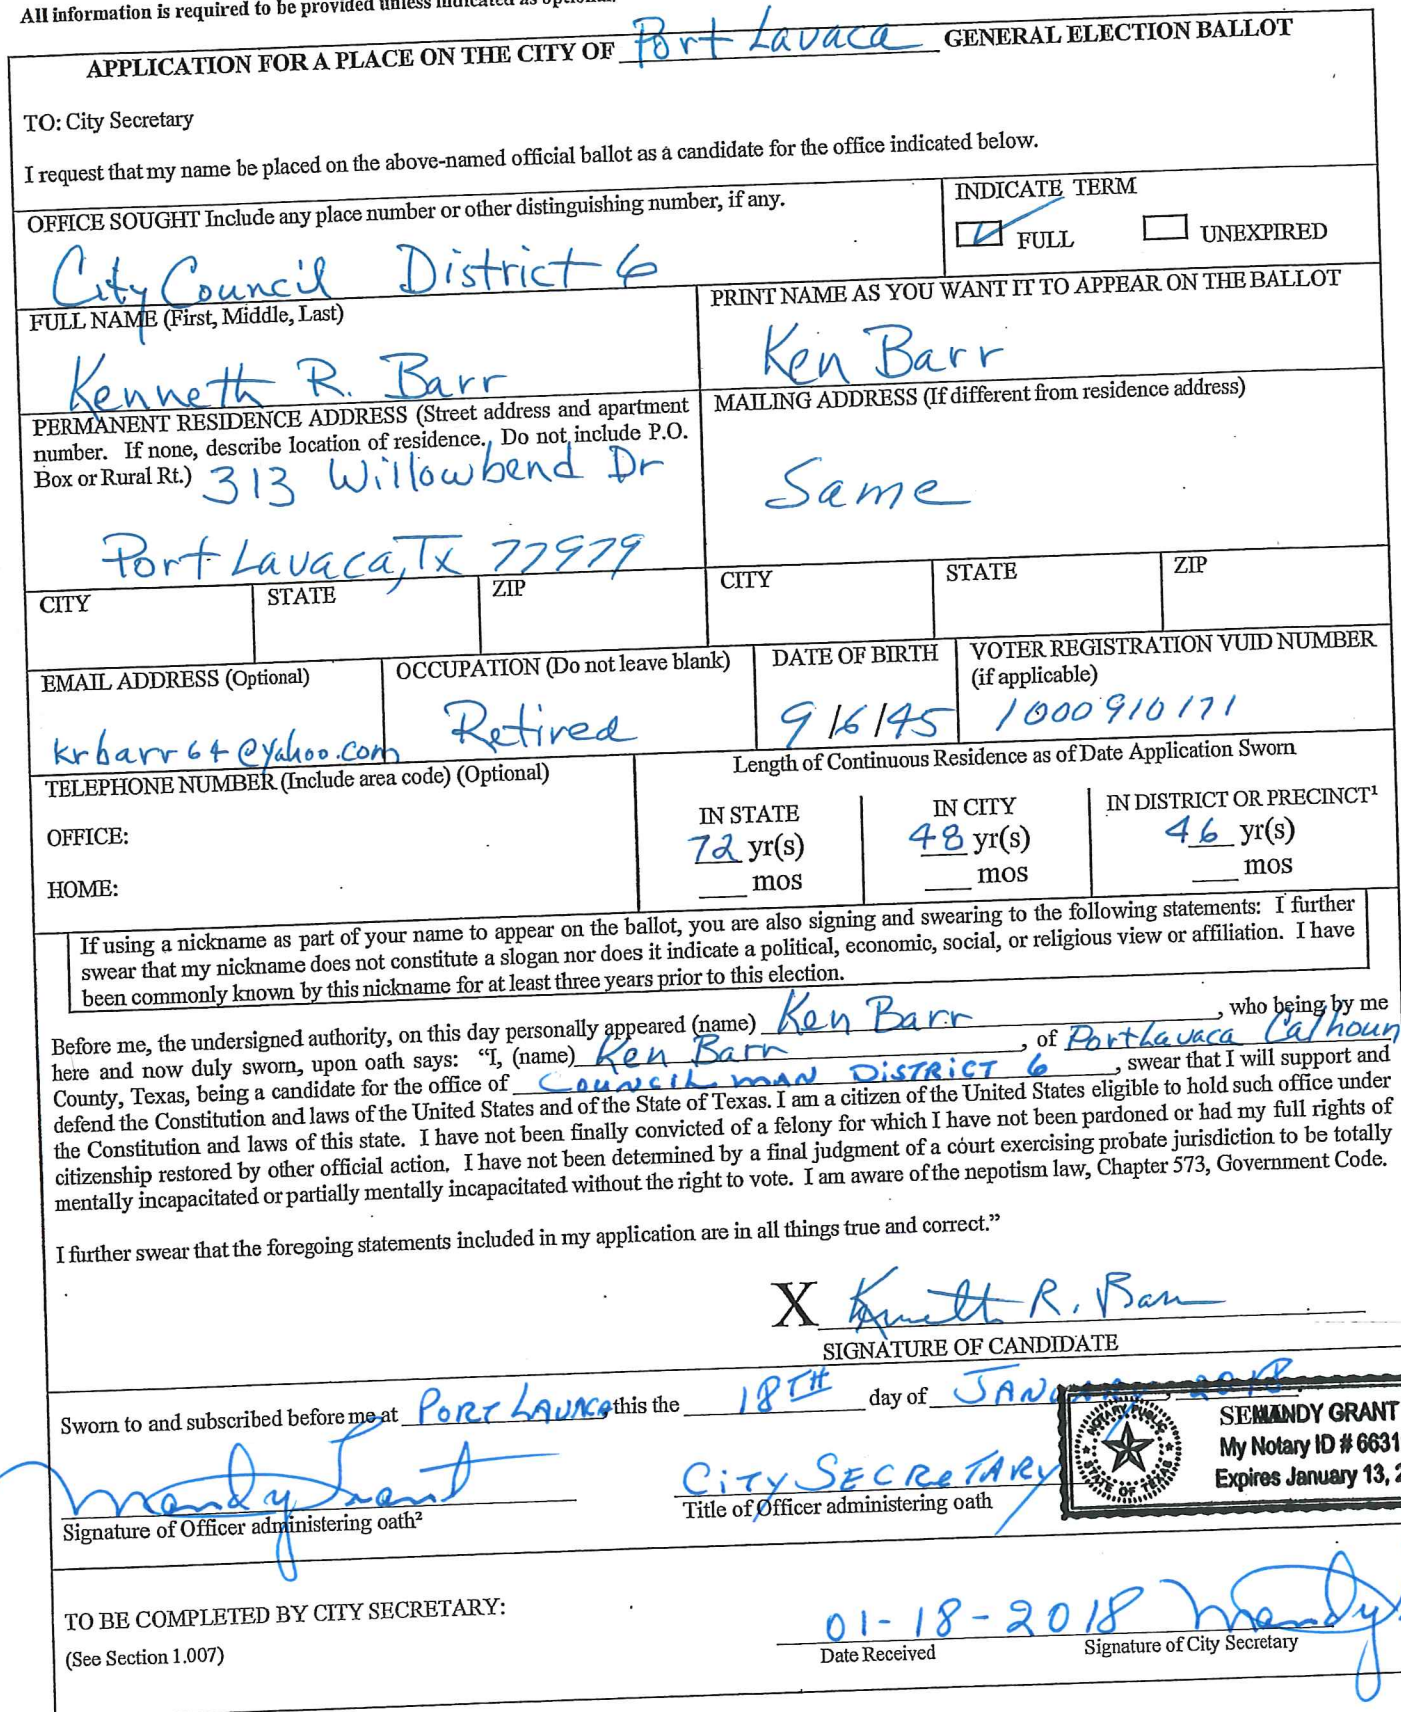 All information is required to be provided unless indicated as optional.
APPLICATION FOR A PLACE ON THE CITY OF Port Lavaca GENERAL ELECTION BALLOT
TO: City Secretary
I request that my name be placed on the above-named official ballot as a candidate for the office indicated below.
OFFICE SOUGHT Include any place number or other distinguishing number, if any.
City Council District 6
INDICATE TERM
FULL
UNEXPIRED
FULL NAME (First, Middle, Last)
Kenneth R. Barr
PRINT NAME AS YOU WANT IT TO APPEAR ON THE BALLOT
Ken Barr
PERMANENT RESIDENCE ADDRESS (Street address and apartment
number. If none, describe location of residence. Do not include P.O.
Box or Rural Rt.) 313 Willowbend Dr
Port Lavaca, Tx 77979
MAILING ADDRESS (If different from residence address)
Same
CITY STATE ZIP CITY STATE ZIP
EMAIL ADDRESS (Optional)
krbarr64@yahoo.com
OCCUPATION (Do not leave blank)
Retired
DATE OF BIRTH
9/6/45
VOTER REGISTRATION VUID NUMBER
(if applicable)
1000910171
TELEPHONE NUMBER (Include area code) (Optional)
OFFICE:
HOME:
Length of Continuous Residence as of Date Application Sworn
IN STATE
72 yr(s)
mos
IN CITY
48 yr(s)
mos
IN DISTRICT OR PRECINCT¹
46 yr(s)
mos
If using a nickname as part of your name to appear on the ballot, you are also signing and swearing to the following statements: I further
swear that my nickname does not constitute a slogan nor does it indicate a political, economic, social, or religious view or affiliation. I have
been commonly known by this nickname for at least three years prior to this election.
Before me, the undersigned authority, on this day personally appeared (name) Ken Barr, who being by me
here and now duly sworn, upon oath says: "I, (name) Ken Barr, of Port Lavaca Calhoun
County, Texas, being a candidate for the office of COUNCILMAN DISTRICT 6, swear that I will support and
defend the Constitution and laws of the United States and of the State of Texas. I am a citizen of the United States eligible to hold such office under
the Constitution and laws of this state. I have not been finally convicted of a felony for which I have not been pardoned or had my full rights of
citizenship restored by other official action. I have not been determined by a final judgment of a court exercising probate jurisdiction to be totally
mentally incapacitated or partially mentally incapacitated without the right to vote. I am aware of the nepotism law, Chapter 573, Government Code.
I further swear that the foregoing statements included in my application are in all things true and correct."
X Kenneth R. Barr
SIGNATURE OF CANDIDATE
Sworn to and subscribed before me at PORT LAVACA this the 18TH day of JANUARY, 2018.
Mandy Grant
Signature of Officer administering oath²
CITY SECRETARY
Title of Officer administering oath
NOTARY PUBLIC
STATE OF TEXAS
MANDY GRANT
My Notary ID # 6631
Expires January 13, 2
TO BE COMPLETED BY CITY SECRETARY:
(See Section 1.007)
01-18-2018
Date Received
Mandy
Signature of City Secretary